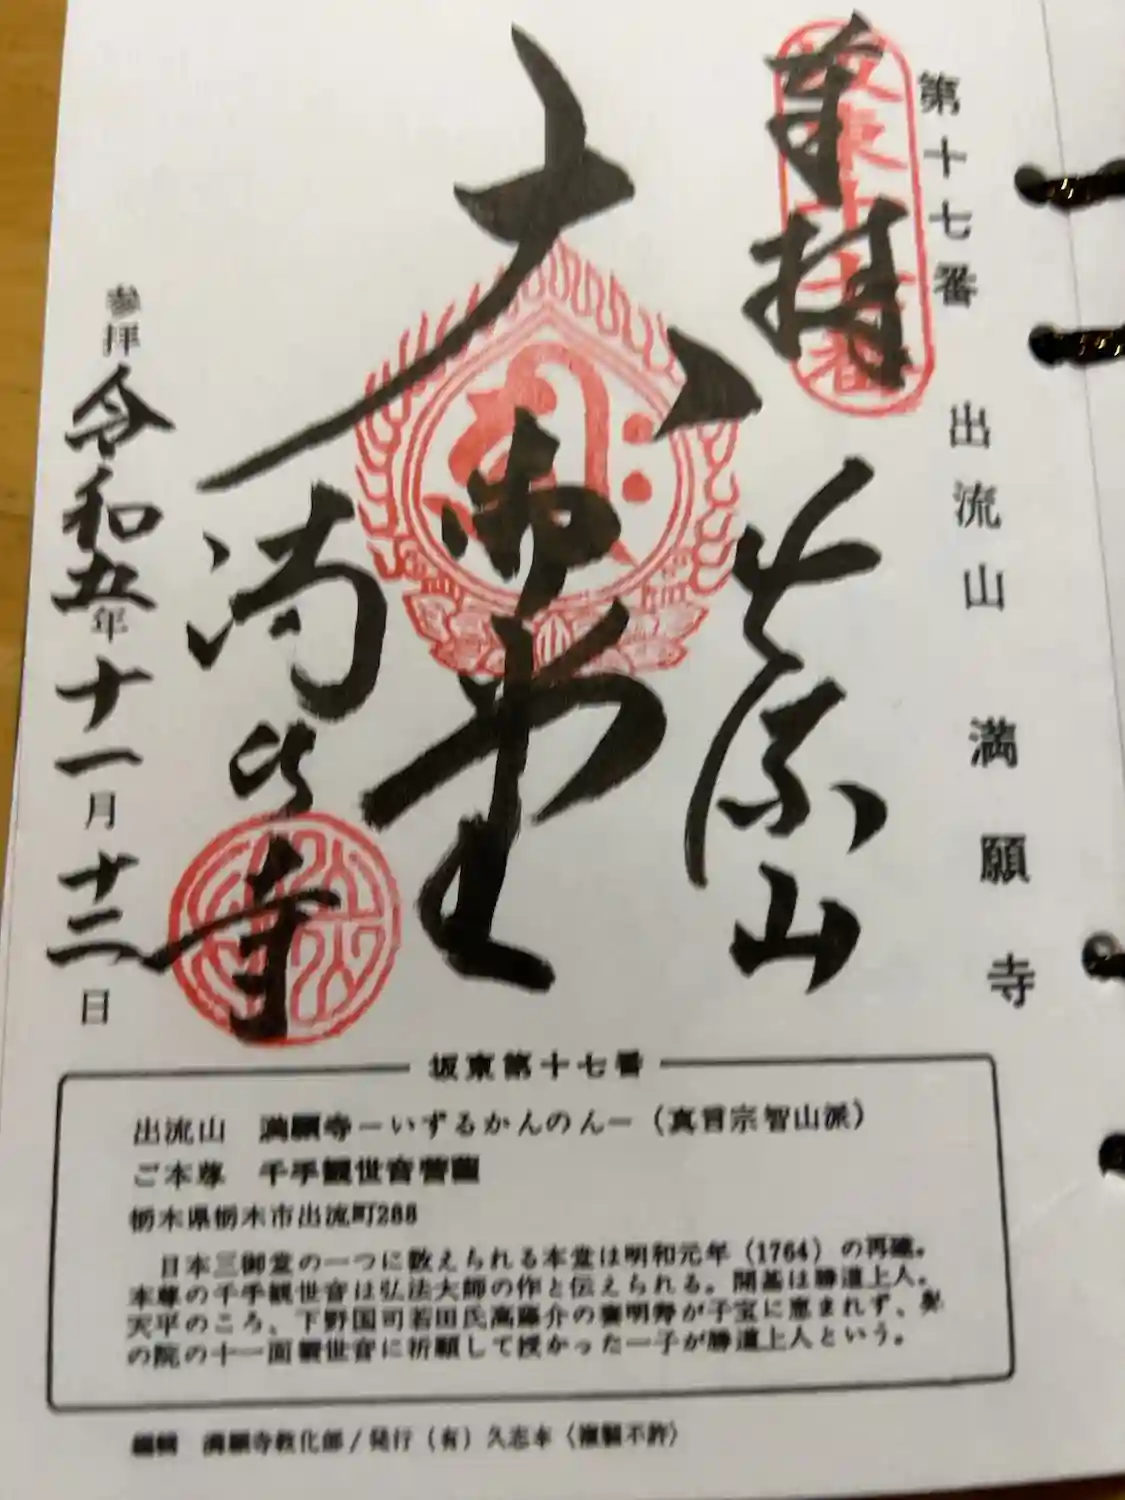 第十七番 出流山 満願寺
奉拝
坂東十七番
出流山
大御堂
満願寺
参拝 令和五年十一月十二日
坂東第十七番
出流山 満願寺ーいずるかんのんー（真言宗智山派）
ご本尊 千手観世音菩薩
栃木県栃木市出流町288
日本三御堂の一つに数えられる本堂は明和元年（1764）の再建。
本尊の千手観世音は弘法大師の作と伝えられる。開基は勝道上人。
天平のころ、下野国司若田氏高藤介の妻明寿が子宝に恵まれず、奥
の院の十一面観世音に祈願して授かった一子が勝道上人という。
編輯 満願寺教化部/発行（有）久志本〈複製不許〉